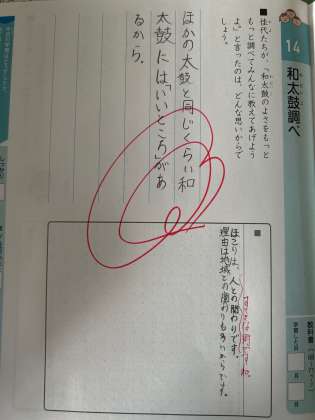 14
和太鼓調べ
■ 佳代たちが、「和太鼓のよさをもっと
もっと調べてみんなに教えてあげよう
よ。」と言ったのは、どんな思いからで
しょう。
ほかの太鼓と同じくらい和
太鼓には「いいところ」があ
るから。
教科書
学習した日
月
日
■
ほこりは、人との関わりです。
理由は地域との関わりも多いからです。